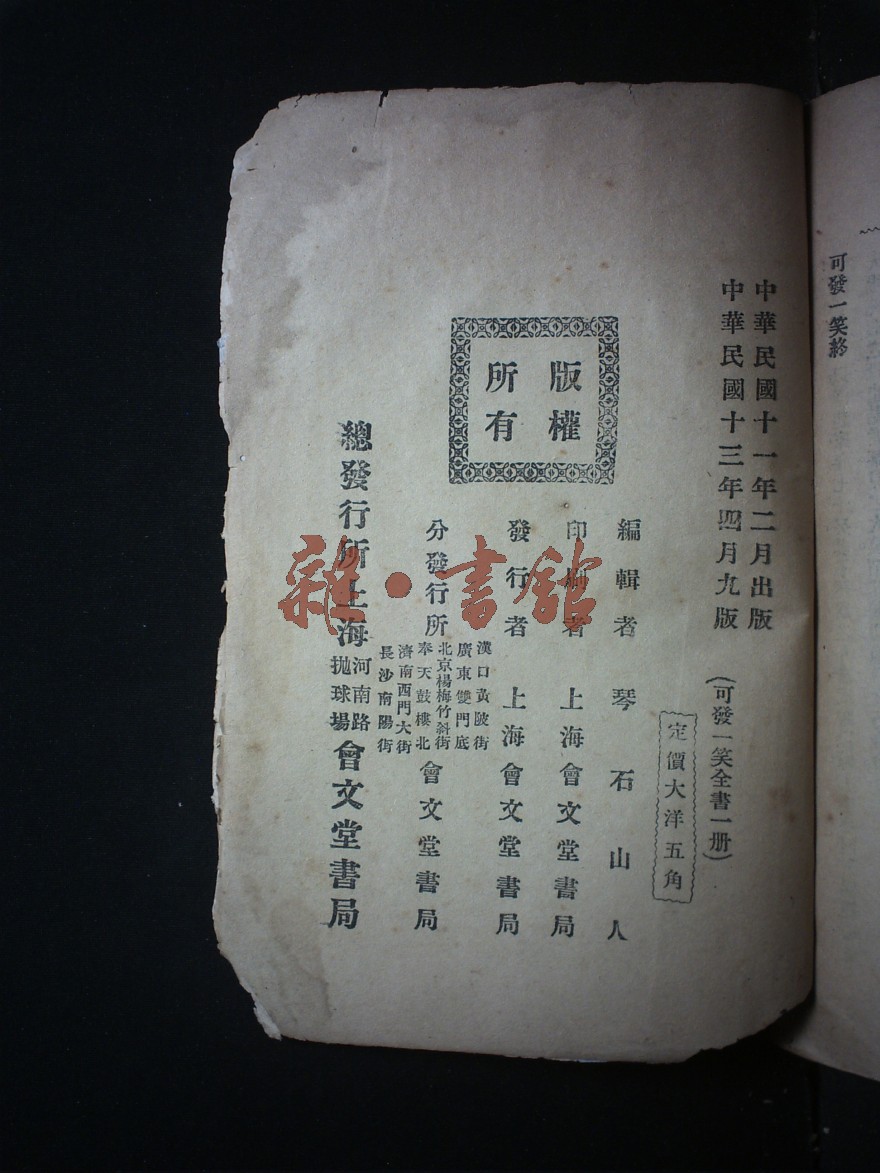 可發一笑終
中華民國十一年二月出版
中華民國十三年四月九版
(可發一笑全書一册)
定價大洋五角
編輯者 琴石山人
印刷者 上海會文堂書局
發行者 上海會文堂書局
版權所有
分發行所
漢口黃陂街
廣東雙門底
北京楊梅竹斜街
奉天鼓樓北
濟南西門大街
長沙南陽街
會文堂書局
總發行所上海
河南路
拋球場
會文堂書局
雜·書館